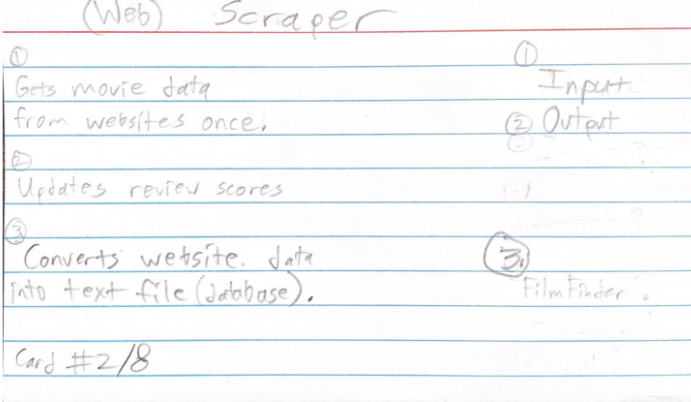 (Web) Scraper
①
Gets movie data
from websites once.
②
Updates review scores
③
Converts website. data
into text file (database).
Card #2/8
①
Input
② Output
③.
FilmFinder.